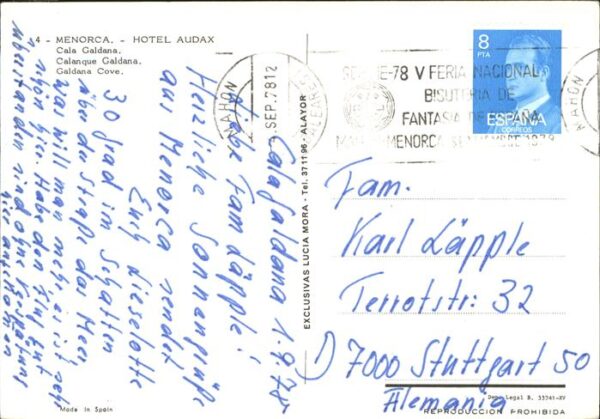 4 - MENORCA, - HOTEL AUDAX
Cala Galdana,
Calanque Galdana,
Galdana Cove,
8
PTA
ESPAÑA
CORREOS
-78 V FERIA NACIONAL
BISUTERIA DE
FANTASIA DE
MENORCA
MAHON
SEP.7812
MAHON
EXCLUSIVAS LUCIA MORA - Tel. 37 11 96 - ALAYOR
Cala Galdana 1.9.78
Liebe Fam. Läpple!
Herzliche Sonnengrüße
aus Menorca sendet
Euch Lieselotte
30 Grad im Schatten
über der Straße das Meer
was will man mehr es ist sehr
schön hier. Habe den Flug gut
überstanden und ohne
hier angekommen
Fam.
Karl Läpple
Terrotstr: 32
7000 Stuttgart 50
Alemania
Depo. Legal B. 33741-XV
REPRODUCCION PROHIBIDA
Made in Spain